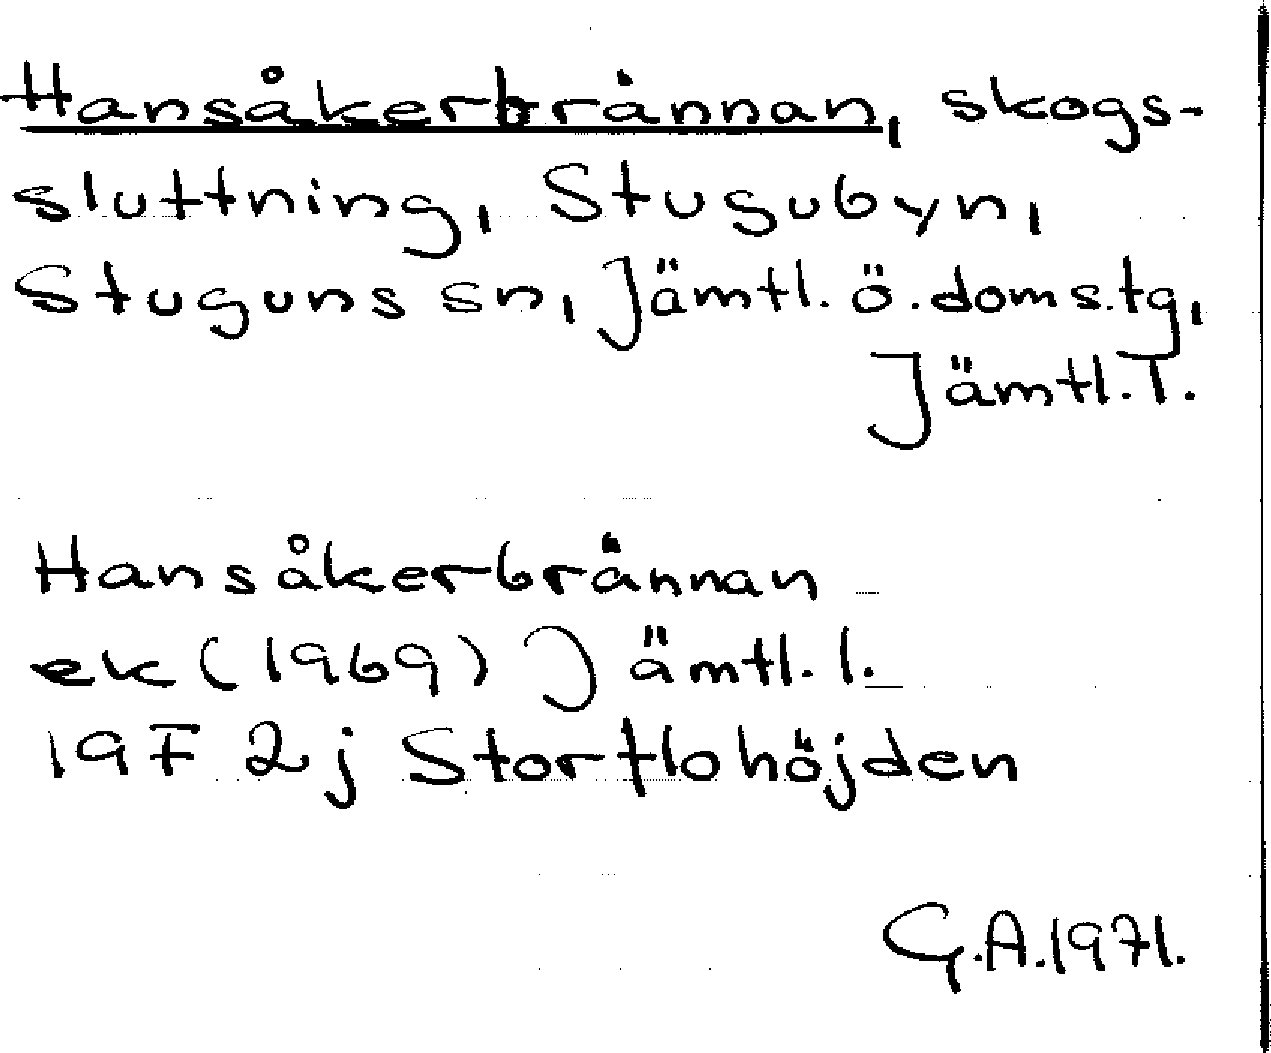 Hansåkerbrännan, skogs-
sluttning, Stugubyn,
Stuguns sn, Jämtl. ö. doms.tg,
Jämtl. l.
Hansåkerbrännan
ek (1969) Jämtl. l.
19F 2j Stortlohöjden
G.A. 1971.